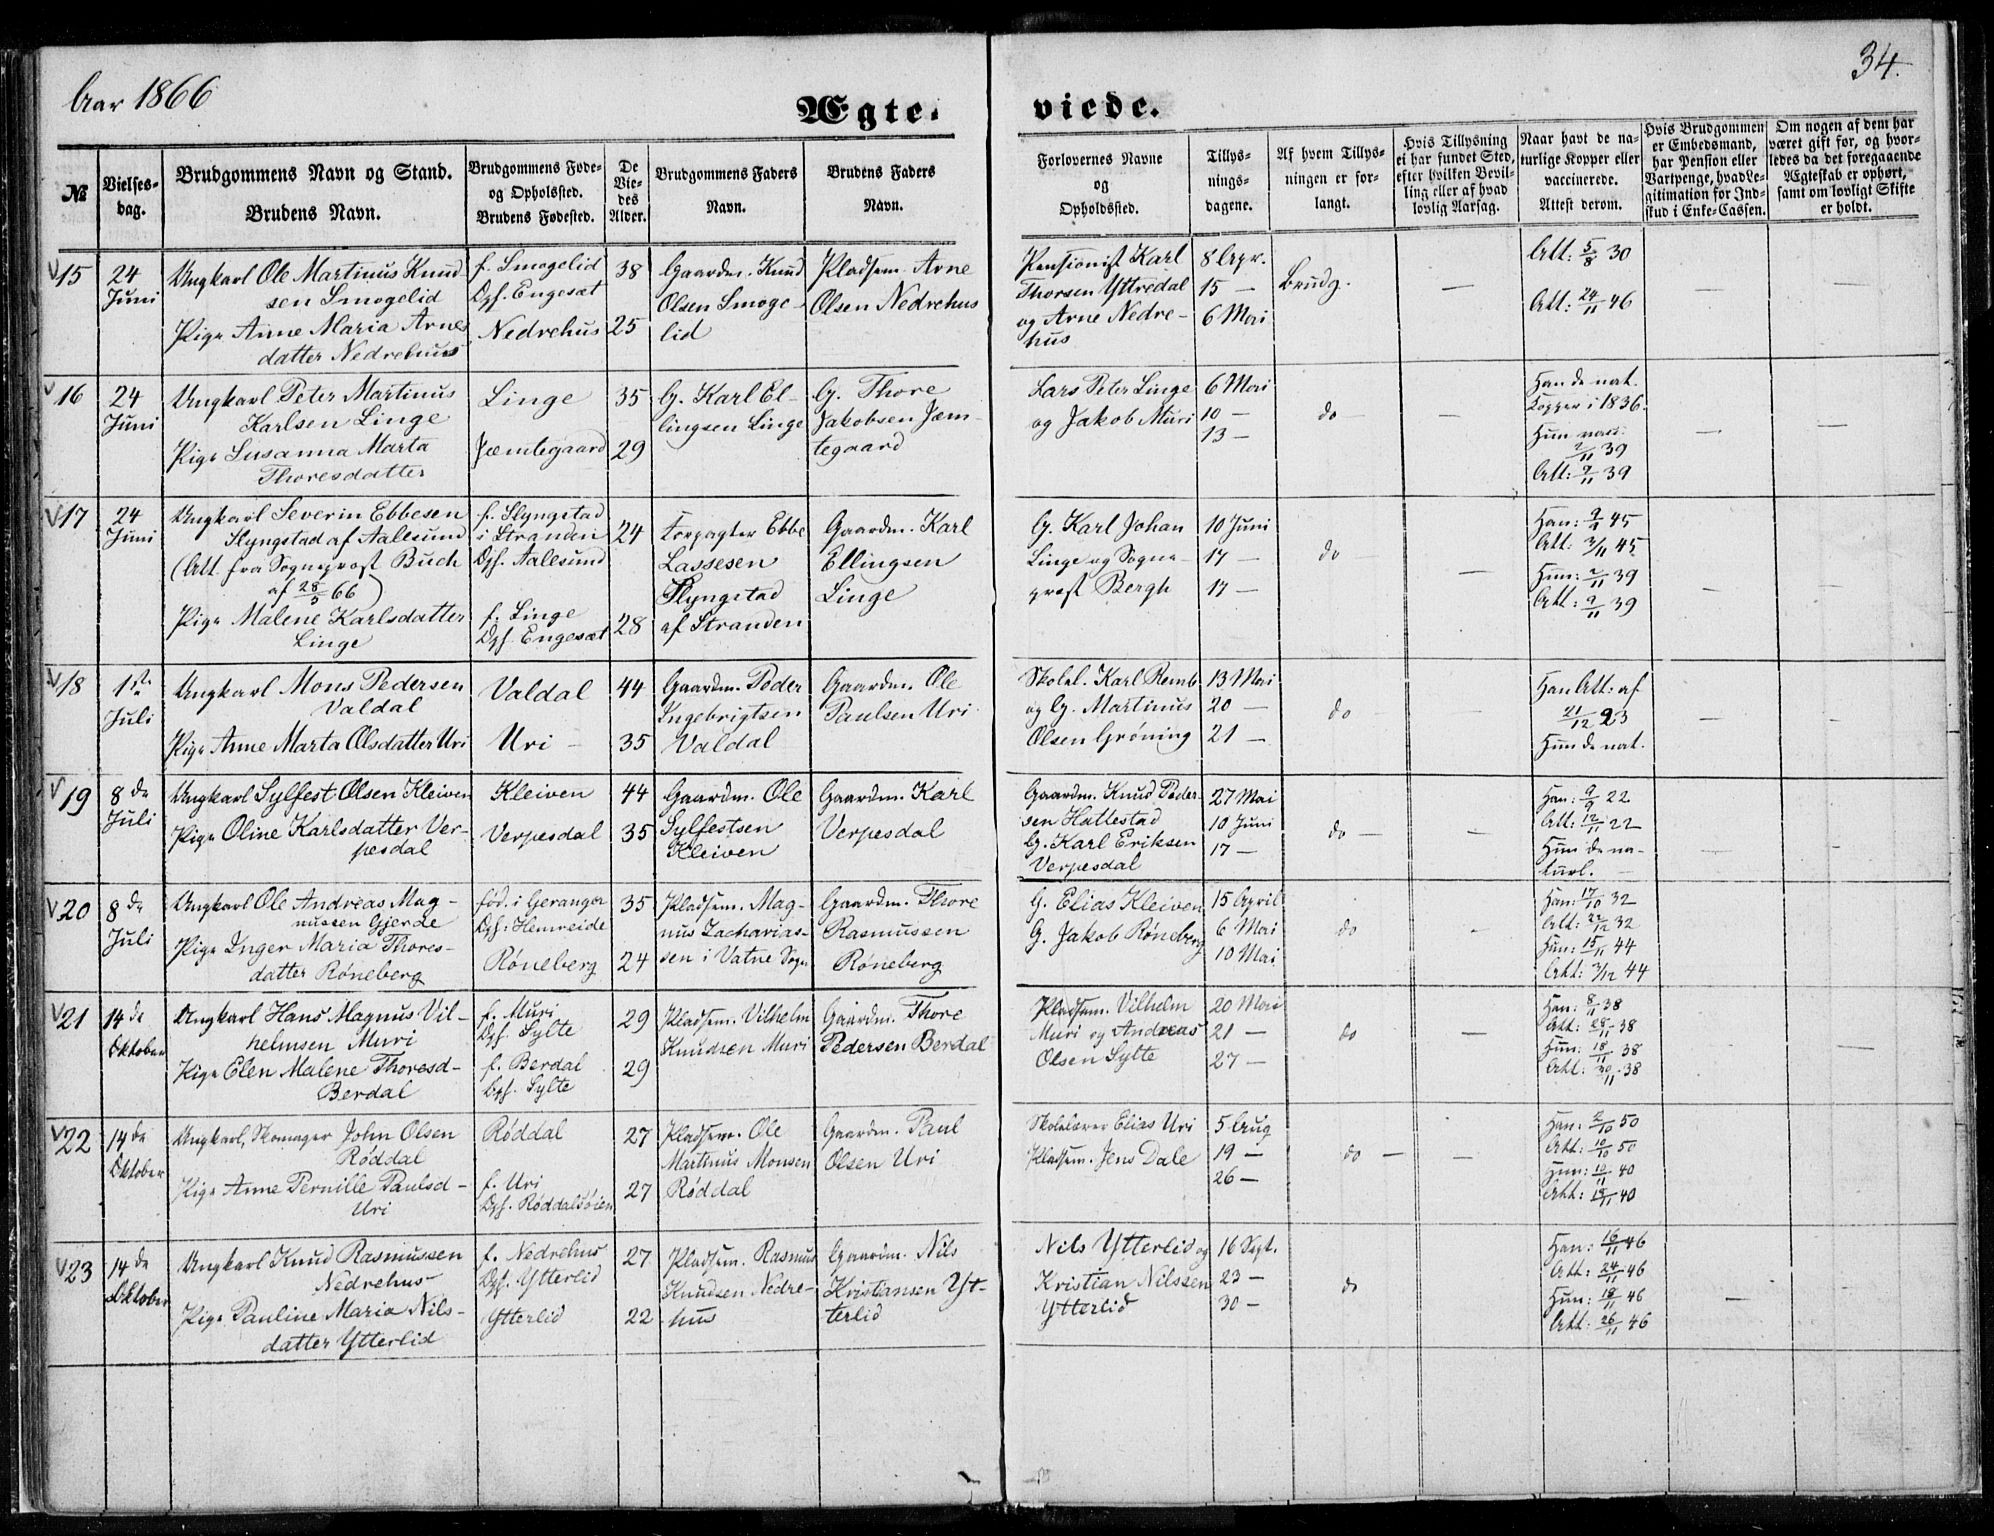 Aar 1866
34.
Ægte-
viede.
№
Vielses-
dag.
Brudgommens Navn og Stand.
Brudens Navn.
Brudgommens Føde-
og Opholssted.
Brudens Fødested.
De
Vie-
des
Alder.
Brudgommens Faders
Navn.
Brudens Faders
Navn.
Forlovernes Navne
og
Opholdssted.
Tillys-
nings-
dagene.
Af hvem Tillys-
ningen er for-
langt.
Hvis Tillysning
ei har fundet Sted,
efter hvilken Bevil-
ling eller af hvad
lovlig Aarsag.
Naar havt de na-
turlige Kopper eller
vaccinerede.
Attest derom.
Hvis Brudgommen
er Embedsmand,
har Pension eller
Vartpenge, hvad Le-
gitimation for Ind-
skud i Enke-Cassen.
Om nogen af dem har
været gift før, og hvor-
ledes da det foregaaende
Ægteskab er ophørt,
samt om lovligt Skifte
er holdt.
15
24
Juni
Ungkarl Ole Martinus Knud-
sen Smogelid
Pige Anne Maria Arnes
datter Nedrehus
f. Smogelid
Opf. Engesæt
Nedrehus
38
25
Gaardm. Knud
Olsen Smoge-
lid
Pladsem. Arne
Olsen Nedrehus
Pensionist Karl
Thorsen Yttredal
og Arne Nedre-
hus
8 Apr.
15 —
6 Mai
Brudg.
—
Att: 5/8 30
Att: 24/11 46
—
—
16
24
Juni
Ungkarl Peter Martinus
Karlsen Linge
Pige Susanna Marta
Thoresdatter
Linge
Jæmtegaard
35
29
G. Karl El-
lingsen Linge
G. Thore
Jakobsen Jæm-
tegaard
Lars Peter Linge
og Jakob Muri
6 Mai
10 —
13 —
do
—
Han de nat.
Kopper i 1836.
Hun vacc.
2/11 39
Att: 9/11 39
—
—
17
24
Juni
Ungkarl Severin Ebbesen
Slyngstad af Aalesund
(Att. fra Sogneprest Buch
af 28/5 66)
Pige Malene Karlsdatter
Linge
f. Slyngstad
i Stranden
Opf. Aalesund
f. Linge
Opf. Engesæt
24
28
Forpagter Ebbe
Lassesen
Slyngstad
af Stranden
Gaardm. Karl
Ellingsen
Linge
G. Karl Johan
Linge og Sogne-
prest Bergh
10 Juni
17 —
17 —
do —
—
Han: 9/11 45
Att: 3/11 45
Hun: 2/11 39
Att: 9/11 39
—
18
1ste
Juli
Ungkarl Mons Pedersen
Valdal
Pige Anne Marta Olsdatter Uri
Valdal
Uri —
44
35
Gaardm. Peder
Ingebrigtsen
Valdal
Gaardm. Ole
Paulsen Uri
Skolel. Karl Remb
og G. Martinus
Olsen Grøning
13 Mai
20 —
21 —
do —
—
Han Att: af
21/12 23
Hun de nat.
—
—
19
8de
Juli
Ungkarl Sylfest Olsen Kleiven
Pige Oline Karlsdatter Ver-
pesdal
Kleiven
Verpesdal
44
35
Gaardm. Ole
Sylfestsen
Kleiven
Gaardm. Karl
Verpesdal
Gaardm. Knud Peder-
sen Hattestad
G. Karl Eriksen
Verpesdal
27 Mai
10 Juni
17 —
do —
—
Han: 9/9 22
Att: 12/11 22
Hun de na-
turl.
—
—
20
8de
Juli
Ungkarl Ole Andreas Mag-
nussen Gjerde
Pige Inger Maria Thores-
datter Røneberg
fød. i Geranger
Opf: Hemreide
Røneberg
35
24
Pladsem. Mag-
nus Zacharias-
sen i Vatne Sogn
Gaardm. Thore
Rasmussen
Røneberg
G. Elias Kleiven
G. Jakob Røneberg
15 April
6 Mai
10 Mai
do
-
Han: 17/10 32
Att: 22/12 32
Hun: 15/11 44
Att: 3/12 44
—
—
21
14de
Oktober
Ungkarl Hans Magnus Vil-
helmsen Muri
Pige Elen Malene Thoresd-
Berdal
f. Muri
Opf. Sylte
f. Berdal
Opf. Sylte
29
29
Pladsem. Vilhelm
Knudsen Muri
Gaardm. Thore
Pedersen Berdal
Pladsem. Vilhelm
Muri og Andreas
Olsen Sylte
20 Mai
21 —
27 —
do
—
Han: 8/11 38
Att: 28/11 38
Hun: 18/11 38
Att: 30/11 38
—
—
22
14de
Oktober
Ungkarl, Skomager John Olsen
Røddal
Pige Anne Pernille Paulsd-
Uri
Røddal
f. Uri
Opf. Røddalsøien
27
27
Pladsem. Ole
Martinus Monsen
Røddal
Gaardm. Paul
Olsen Uri
Skolelærer Elias Uri
Pladsem. Jens Dale
5 Aug
19 —
26 —
do —
—
Han: 2/10 50
Att: 10/10 50
Hun: 10/11 40
Att: 18/11 40
23
14de
Oktober
Ungkarl Knud Rasmussen
Nedrehus
Pige Pauline Maria Nils-
datter Ytterlid
f. Nedrehus
Opf. Ytterlid
Ytterlid
27
22
Pladsem. Rasmus
Knudsen Nedre-
hus
Gaardm. Nils
Kristiansen Yt-
terlid
Nils Ytterlid og
Kristian Nilssen
Ytterlid
16 Sept.
23 —
30 —
do
Han: 16/11 46
Att: 24/11 46
Hun: 18/11 46
Att: 26/11 46
—
—